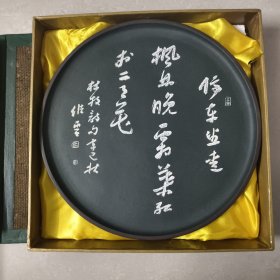 停車坐愛
楓林晚霜葉紅
於二月花
杜牧詩句辛巳秋